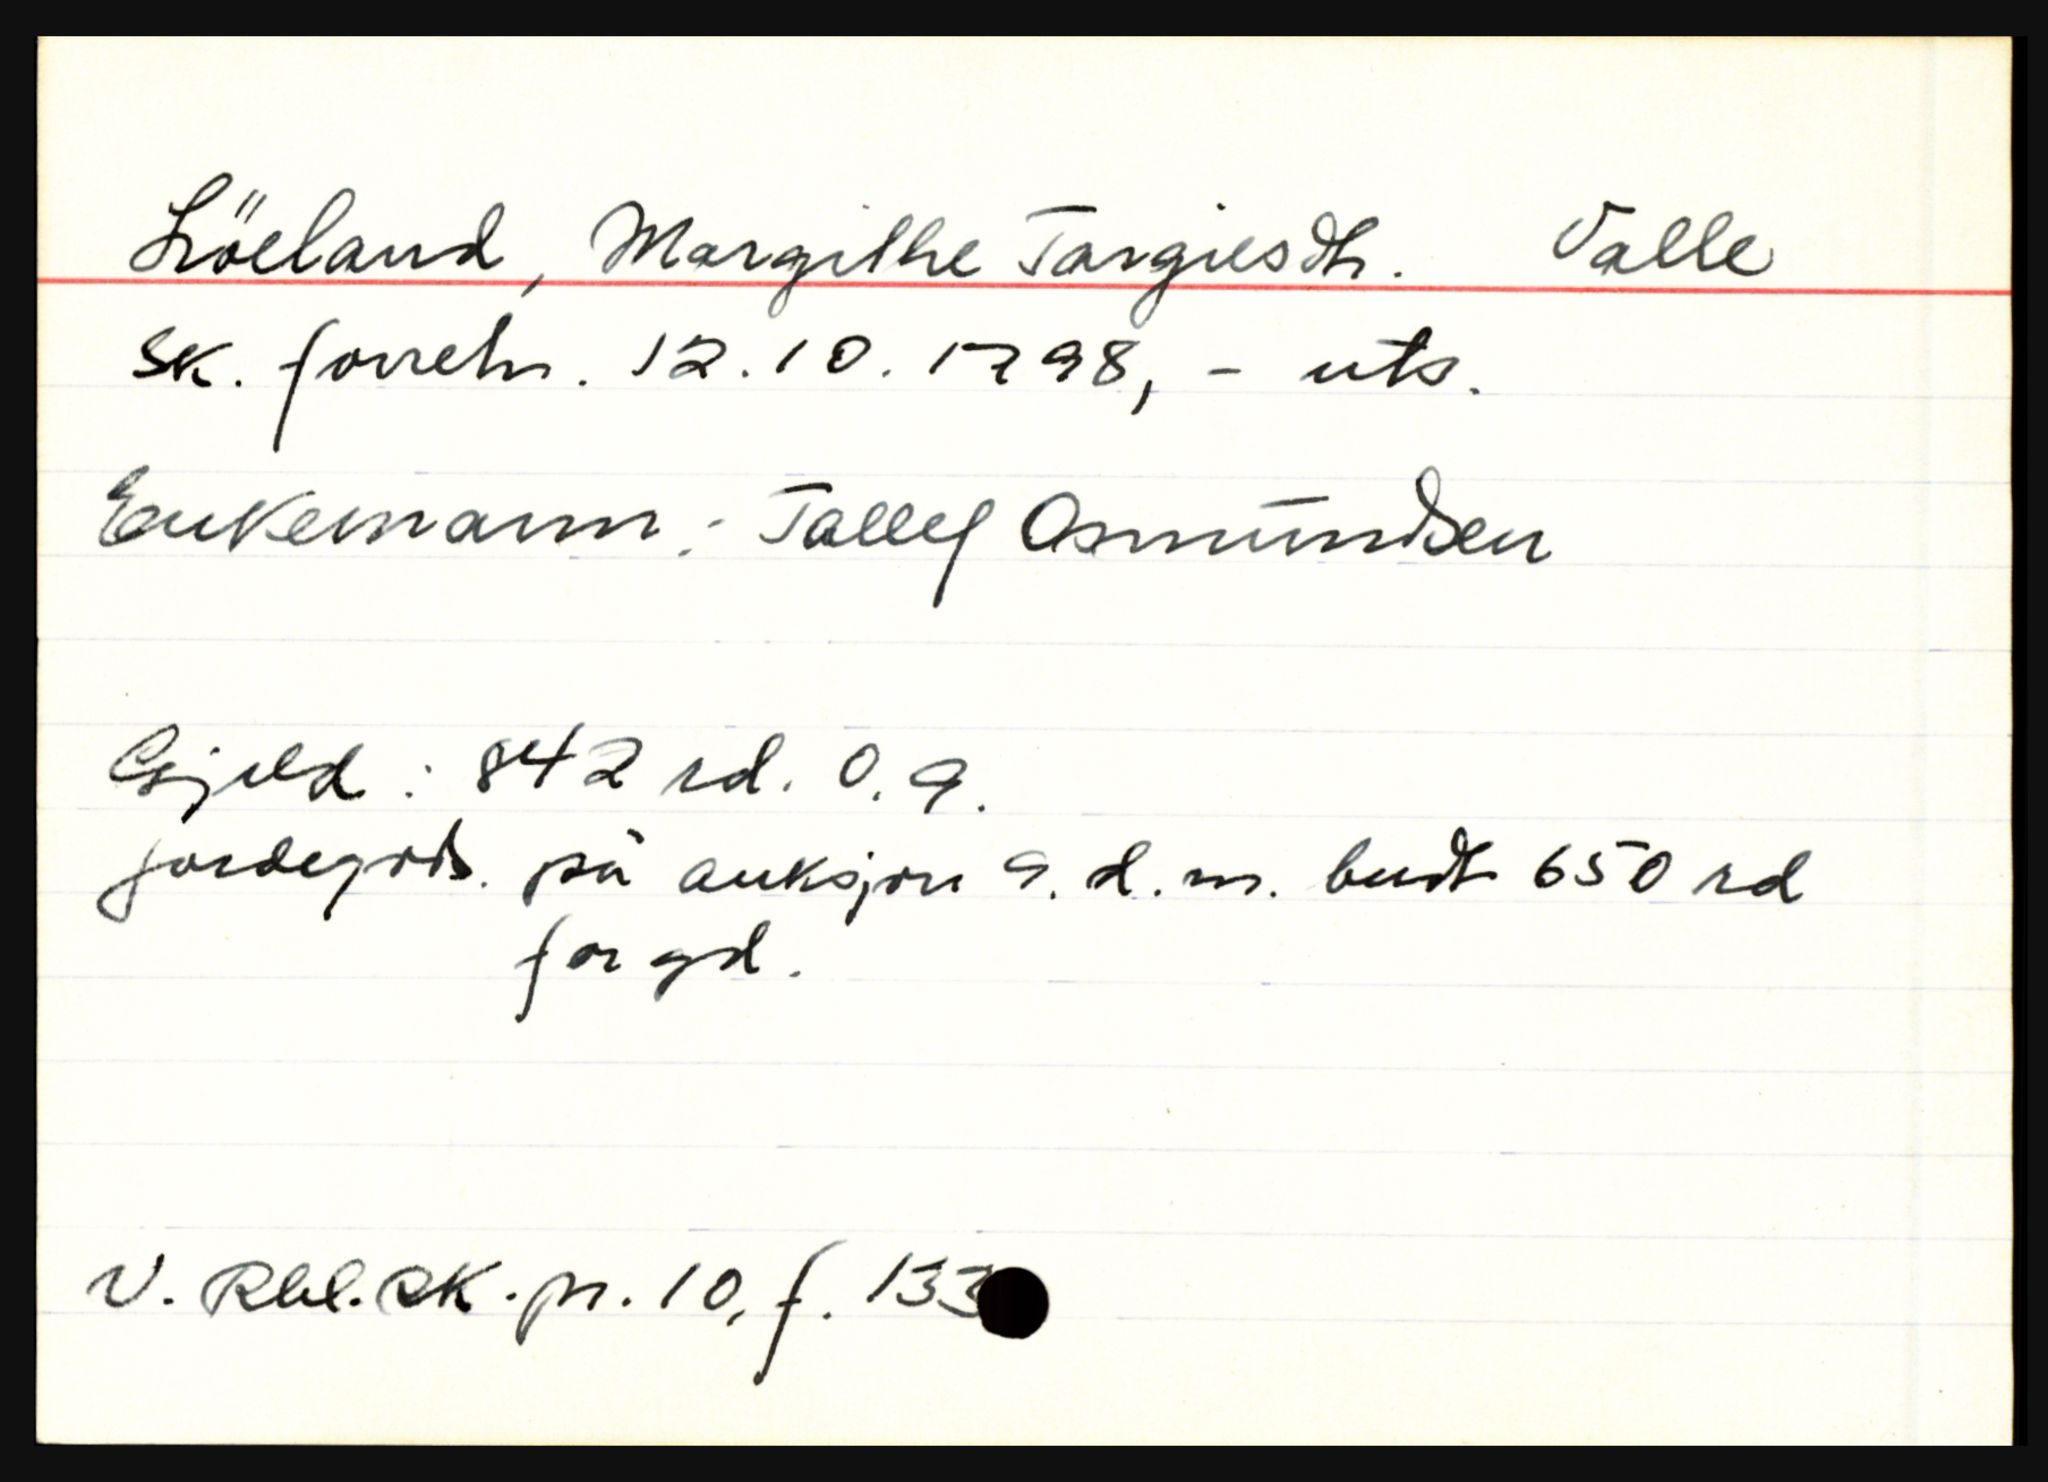 Löeland, Margithe Targiesdtr. Valle
Sk. forretn. 12.10.1798, - uts.
Enkemann: Tallef Osmundsen
Gjeld: 842 rd. 0. 9.
jordegods. på auksjon 9. d. m. budt 650 rd
for gd.
V. Rbl. SK. pr. 10, f. 133